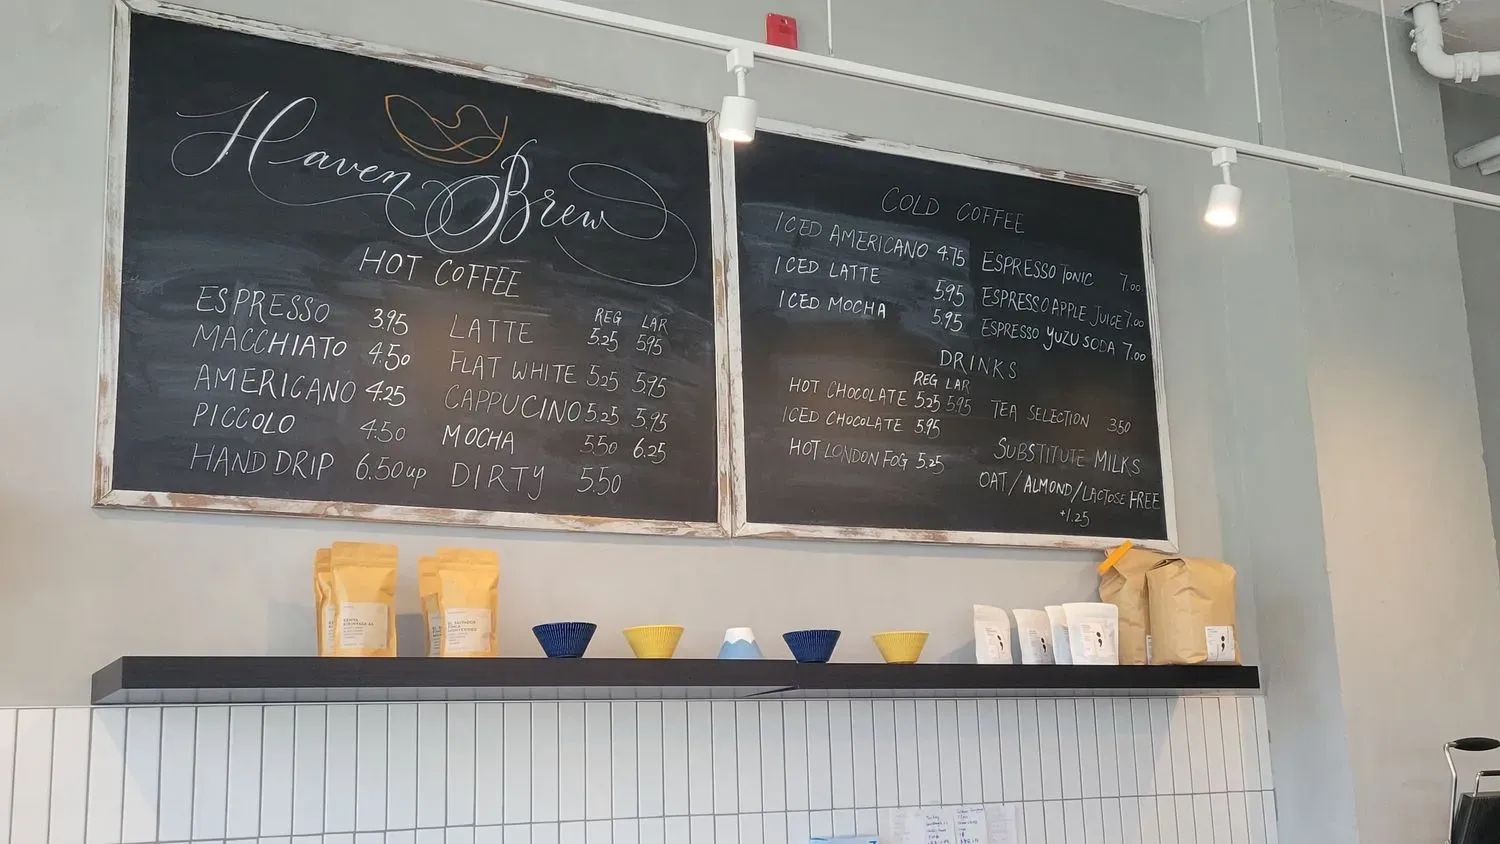 Haven Brew
HOT COFFEE
ESPRESSO 3.95
MACCHIATO 4.50
AMERICANO 4.25
PICCOLO 4.50
HAND DRIP 6.50 up
REG LAR
LATTE 5.25 5.95
FLAT WHITE 5.25 5.95
CAPPUCINO 5.25 5.95
MOCHA 5.50 6.25
DIRTY 5.50
COLD COFFEE
ICED AMERICANO 4.75
ICED LATTE 5.95
ICED MOCHA 5.95
ESPRESSO TONIC 7.00
ESPRESSO APPLE JUICE 7.00
ESPRESSO YUZU SODA 7.00
DRINKS
REG LAR
HOT CHOCOLATE 5.25 5.95
ICED CHOCOLATE 5.95
HOT LONDON FOG 5.25
TEA SELECTION 3.50
SUBSTITUTE MILKS
OAT / ALMOND / LACTOSE FREE
+1.25
KENYA
KIRINYAGA AA
EL SALVADOR
FINCA